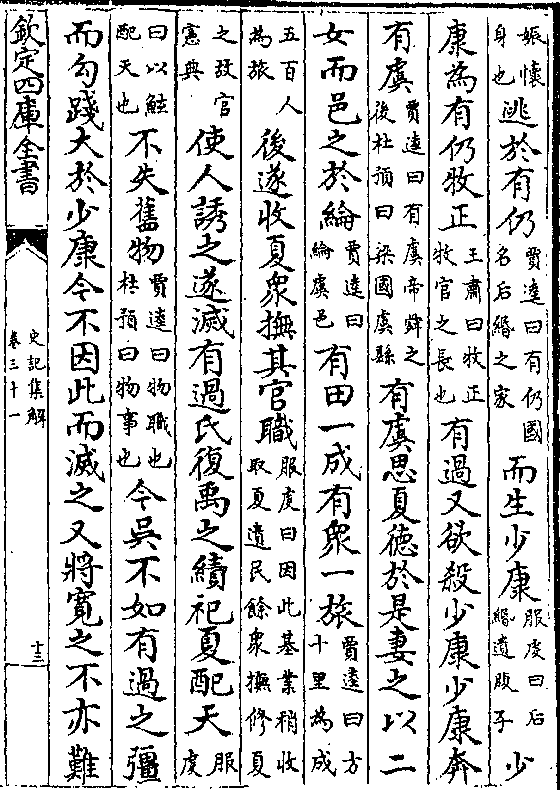 娠懷身也逃於有仍賈逵曰有仍國名后緡之家而生少康服虔曰后緡遺腹子少
康為有仍牧正王肅曰牧正牧官之長也有過又欲殺少康少康奔
有虞賈逵曰有虞帝舜之後杜預曰梁國虞縣有虞思夏德於是妻之以二
女而邑之於綸賈逵曰綸虞邑有田一成有衆一旅賈逵曰方十里為成
五百人為旅後遂收夏衆撫其官職服虔曰因此基業稍收取夏遺民餘衆撫修夏
之故官憲典使人誘之遂滅有過氏復禹之績祀夏配天服虔
曰以鯀配天也不失舊物賈逵曰物職也杜預曰物事也今吳不如有過之彊
而勾踐大於少康今不因此而滅之又將寬之不亦難
欽定四庫全書
史記集解
卷三十一
十三